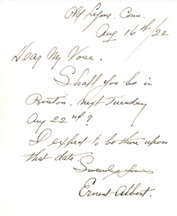 Old Lyme, Conn.
Aug 16th/22
Dear Mr Vose.
Shall you be in
Boston next Tuesday
Aug 22nd?
I expect to be there upon
that date
Sincerely Yours
Ernest Albert.